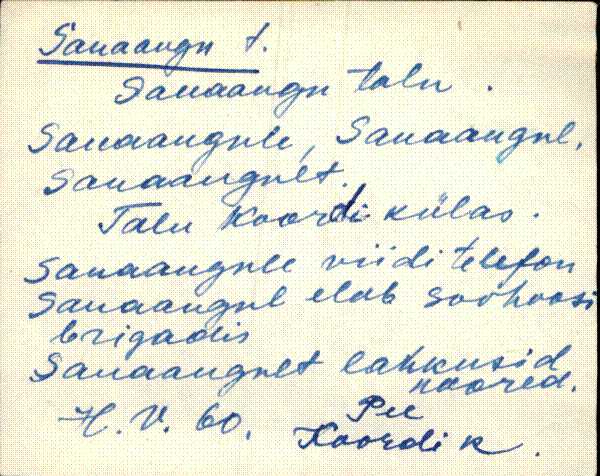 Sauaangu t.
Sauaangu talu.
Sauaangule, Sauaangul,
Sauaangult.
Talu Koordi külas.
Sauaangule viidi telefon
Sauaangul elab sovhoosi
brigadis
Sauaangult lahkusid
noored.
H. V. 60. Pee
Koordi k.